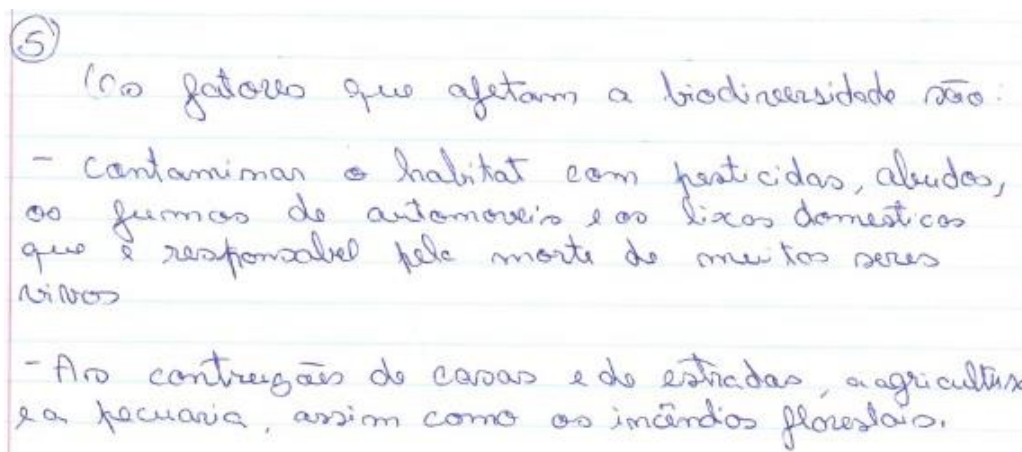 5
Os fatores que afetam a biodiversidade são:
- contaminar o habitat com pesticidas, abudos,
os fumos de automoveis e os lixos domesticos
que é responsabel pela morte de muitos seres
vivos
- As contruções de casas e de estradas, a agricultura
e a pecuaria, assim como os incêndios florestais.